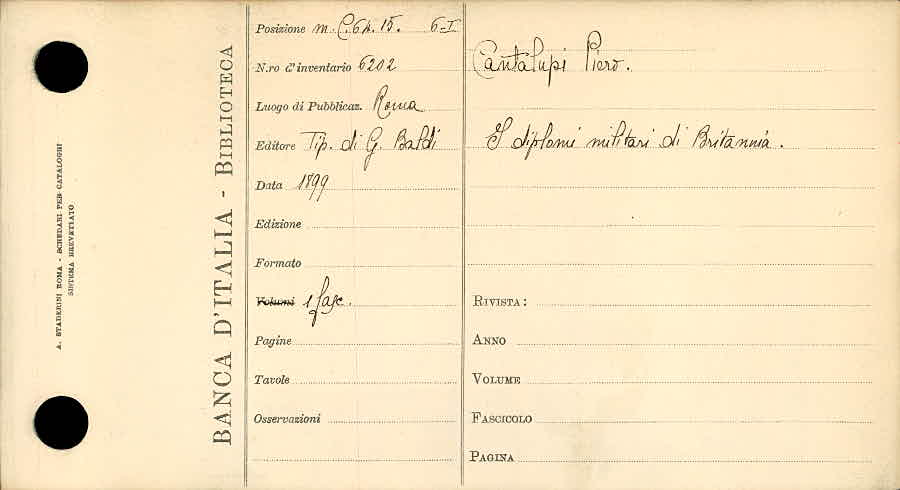 A. STADERINI ROMA - SCHEDARI PER CATALOGHI
SISTEMA BREVETTATO
BANCA D'ITALIA - BIBLIOTECA
Posizione m. C. 64. 15. 6-I
N.ro d'inventario 6202
Luogo di Pubblicaz. Roma
Editore Tip. di G. Baldi
Data 1899
Edizione
Formato
Volumi 1 fasc.
Pagine
Tavole
Osservazioni
Cantalupi Piero.
I diplomi militari di Britannia.
RIVISTA:
ANNO
VOLUME
FASCICOLO
PAGINA